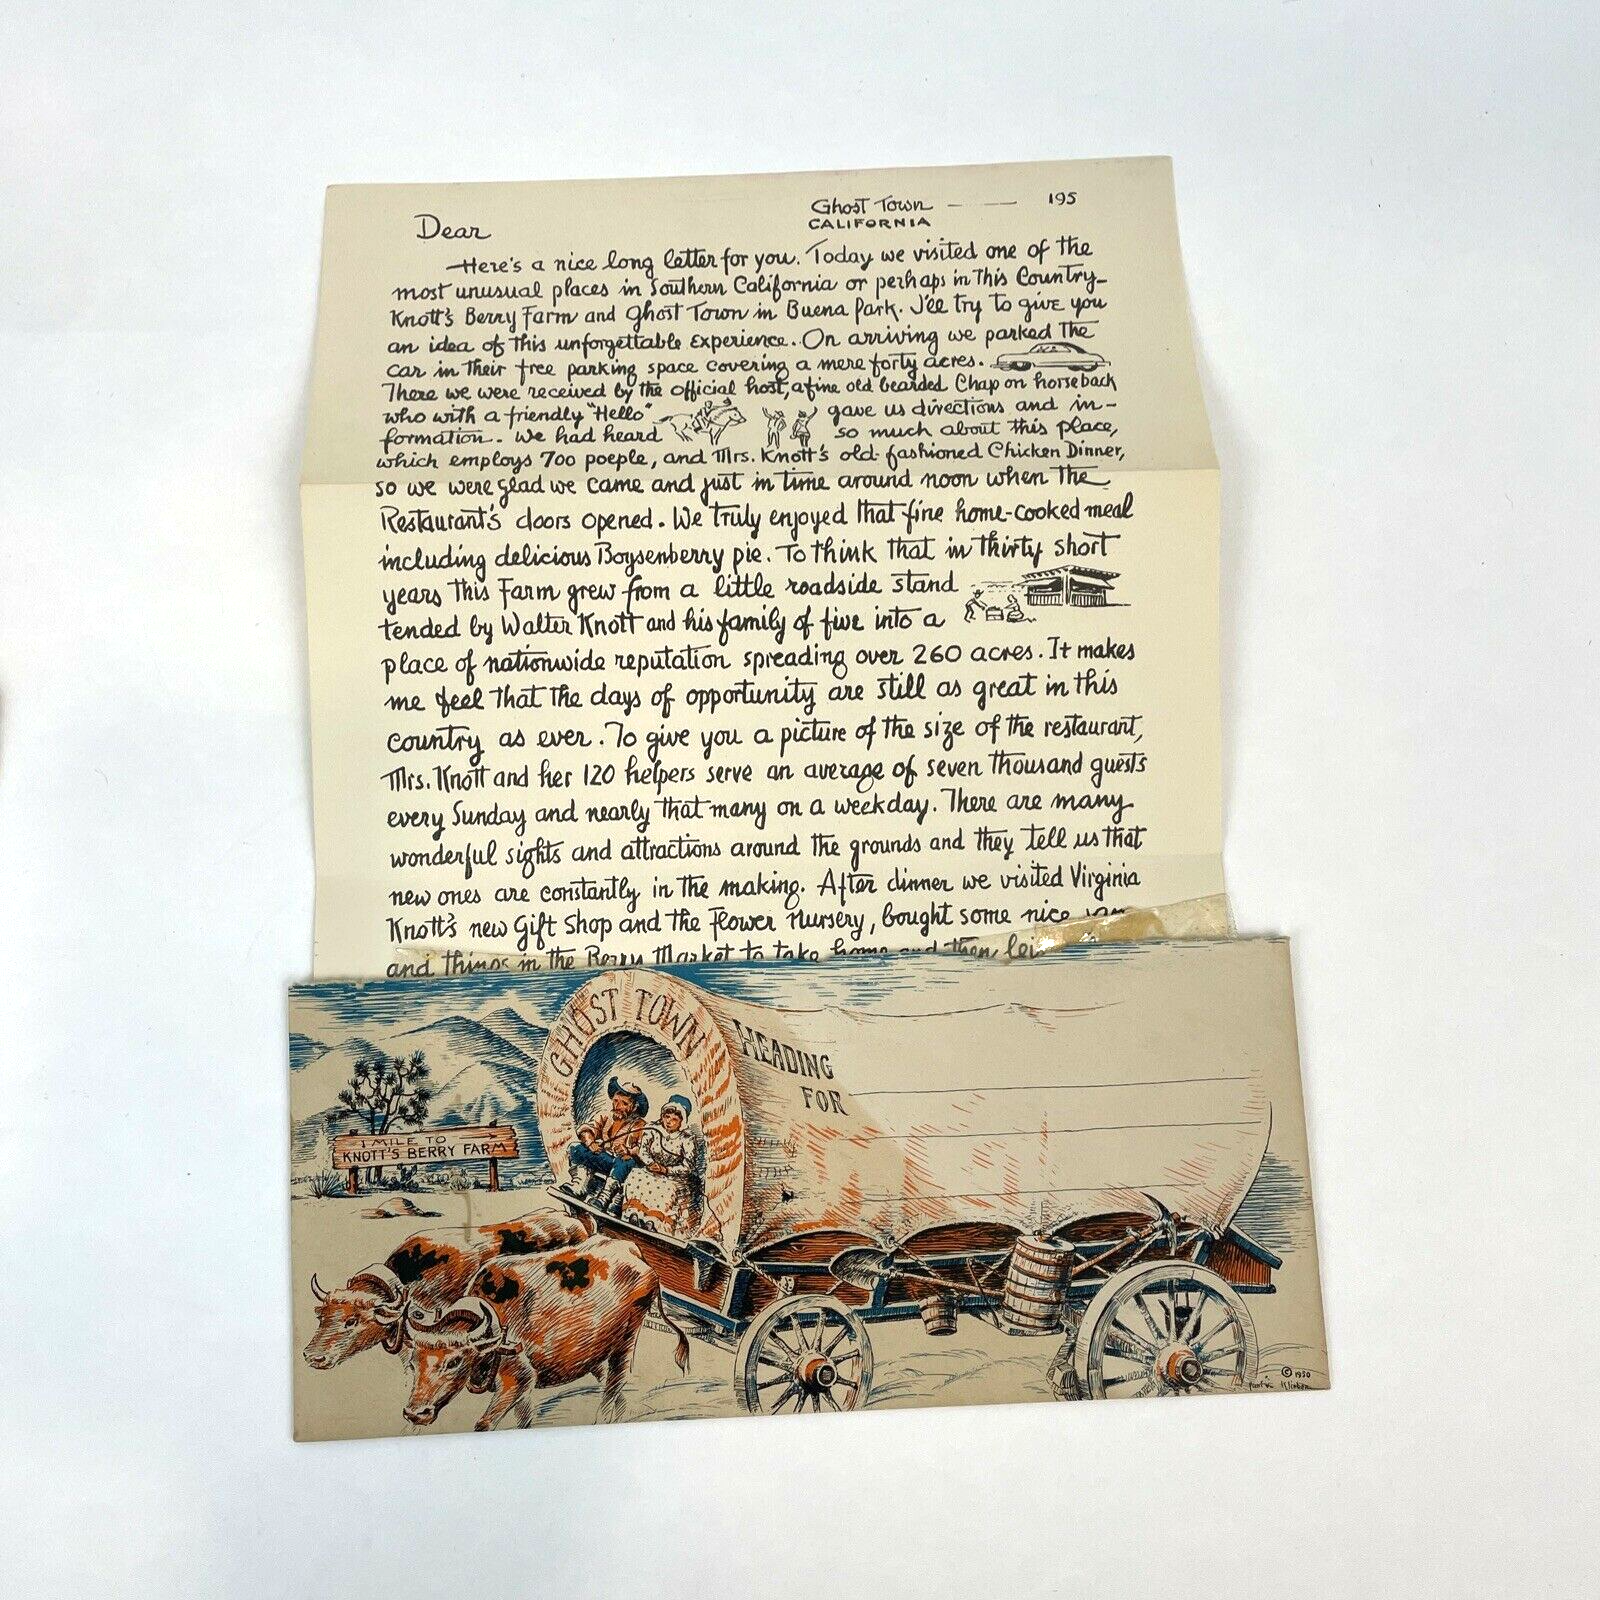 Ghost Town ——— 195
CALIFORNIA
Dear
Here's a nice long letter for you. Today we visited one of the
most unusual places in Southern California or perhaps in this Country–
Knott's Berry Farm and Ghost Town in Buena Park. I'll try to give you
an idea of this unforgettable experience. On arriving we parked the
car in their free parking space covering a mere forty acres.
There we were received by the official host, a fine old bearded Chap on horseback
who with a friendly "Hello" gave us directions and in-
formation. We had heard so much about this place,
which employs 700 poeple, and Mrs. Knott's old-fashioned Chicken Dinner,
so we were glad we came and just in time around noon when the
Restaurant's doors opened. We truly enjoyed that fine home-cooked meal
including delicious Boysenberry pie. To think that in thirty short
years this Farm grew from a little roadside stand
tended by Walter Knott and his family of five into a
place of nationwide reputation spreading over 260 acres. It makes
me feel that the days of opportunity are still as great in this
country as ever. To give you a picture of the size of the restaurant,
Mrs. Knott and her 120 helpers serve an average of seven thousand guests
every Sunday and nearly that many on a weekday. There are many
wonderful sights and attractions around the grounds and they tell us that
new ones are constantly in the making. After dinner we visited Virginia
Knott's new Gift Shop and the Flower Nursery, bought some nice
and things in the Berry Market to take home and then
GHOST TOWN
HEADING
FOR
1 MILE TO
KNOTT'S BERRY FARM
© 1950